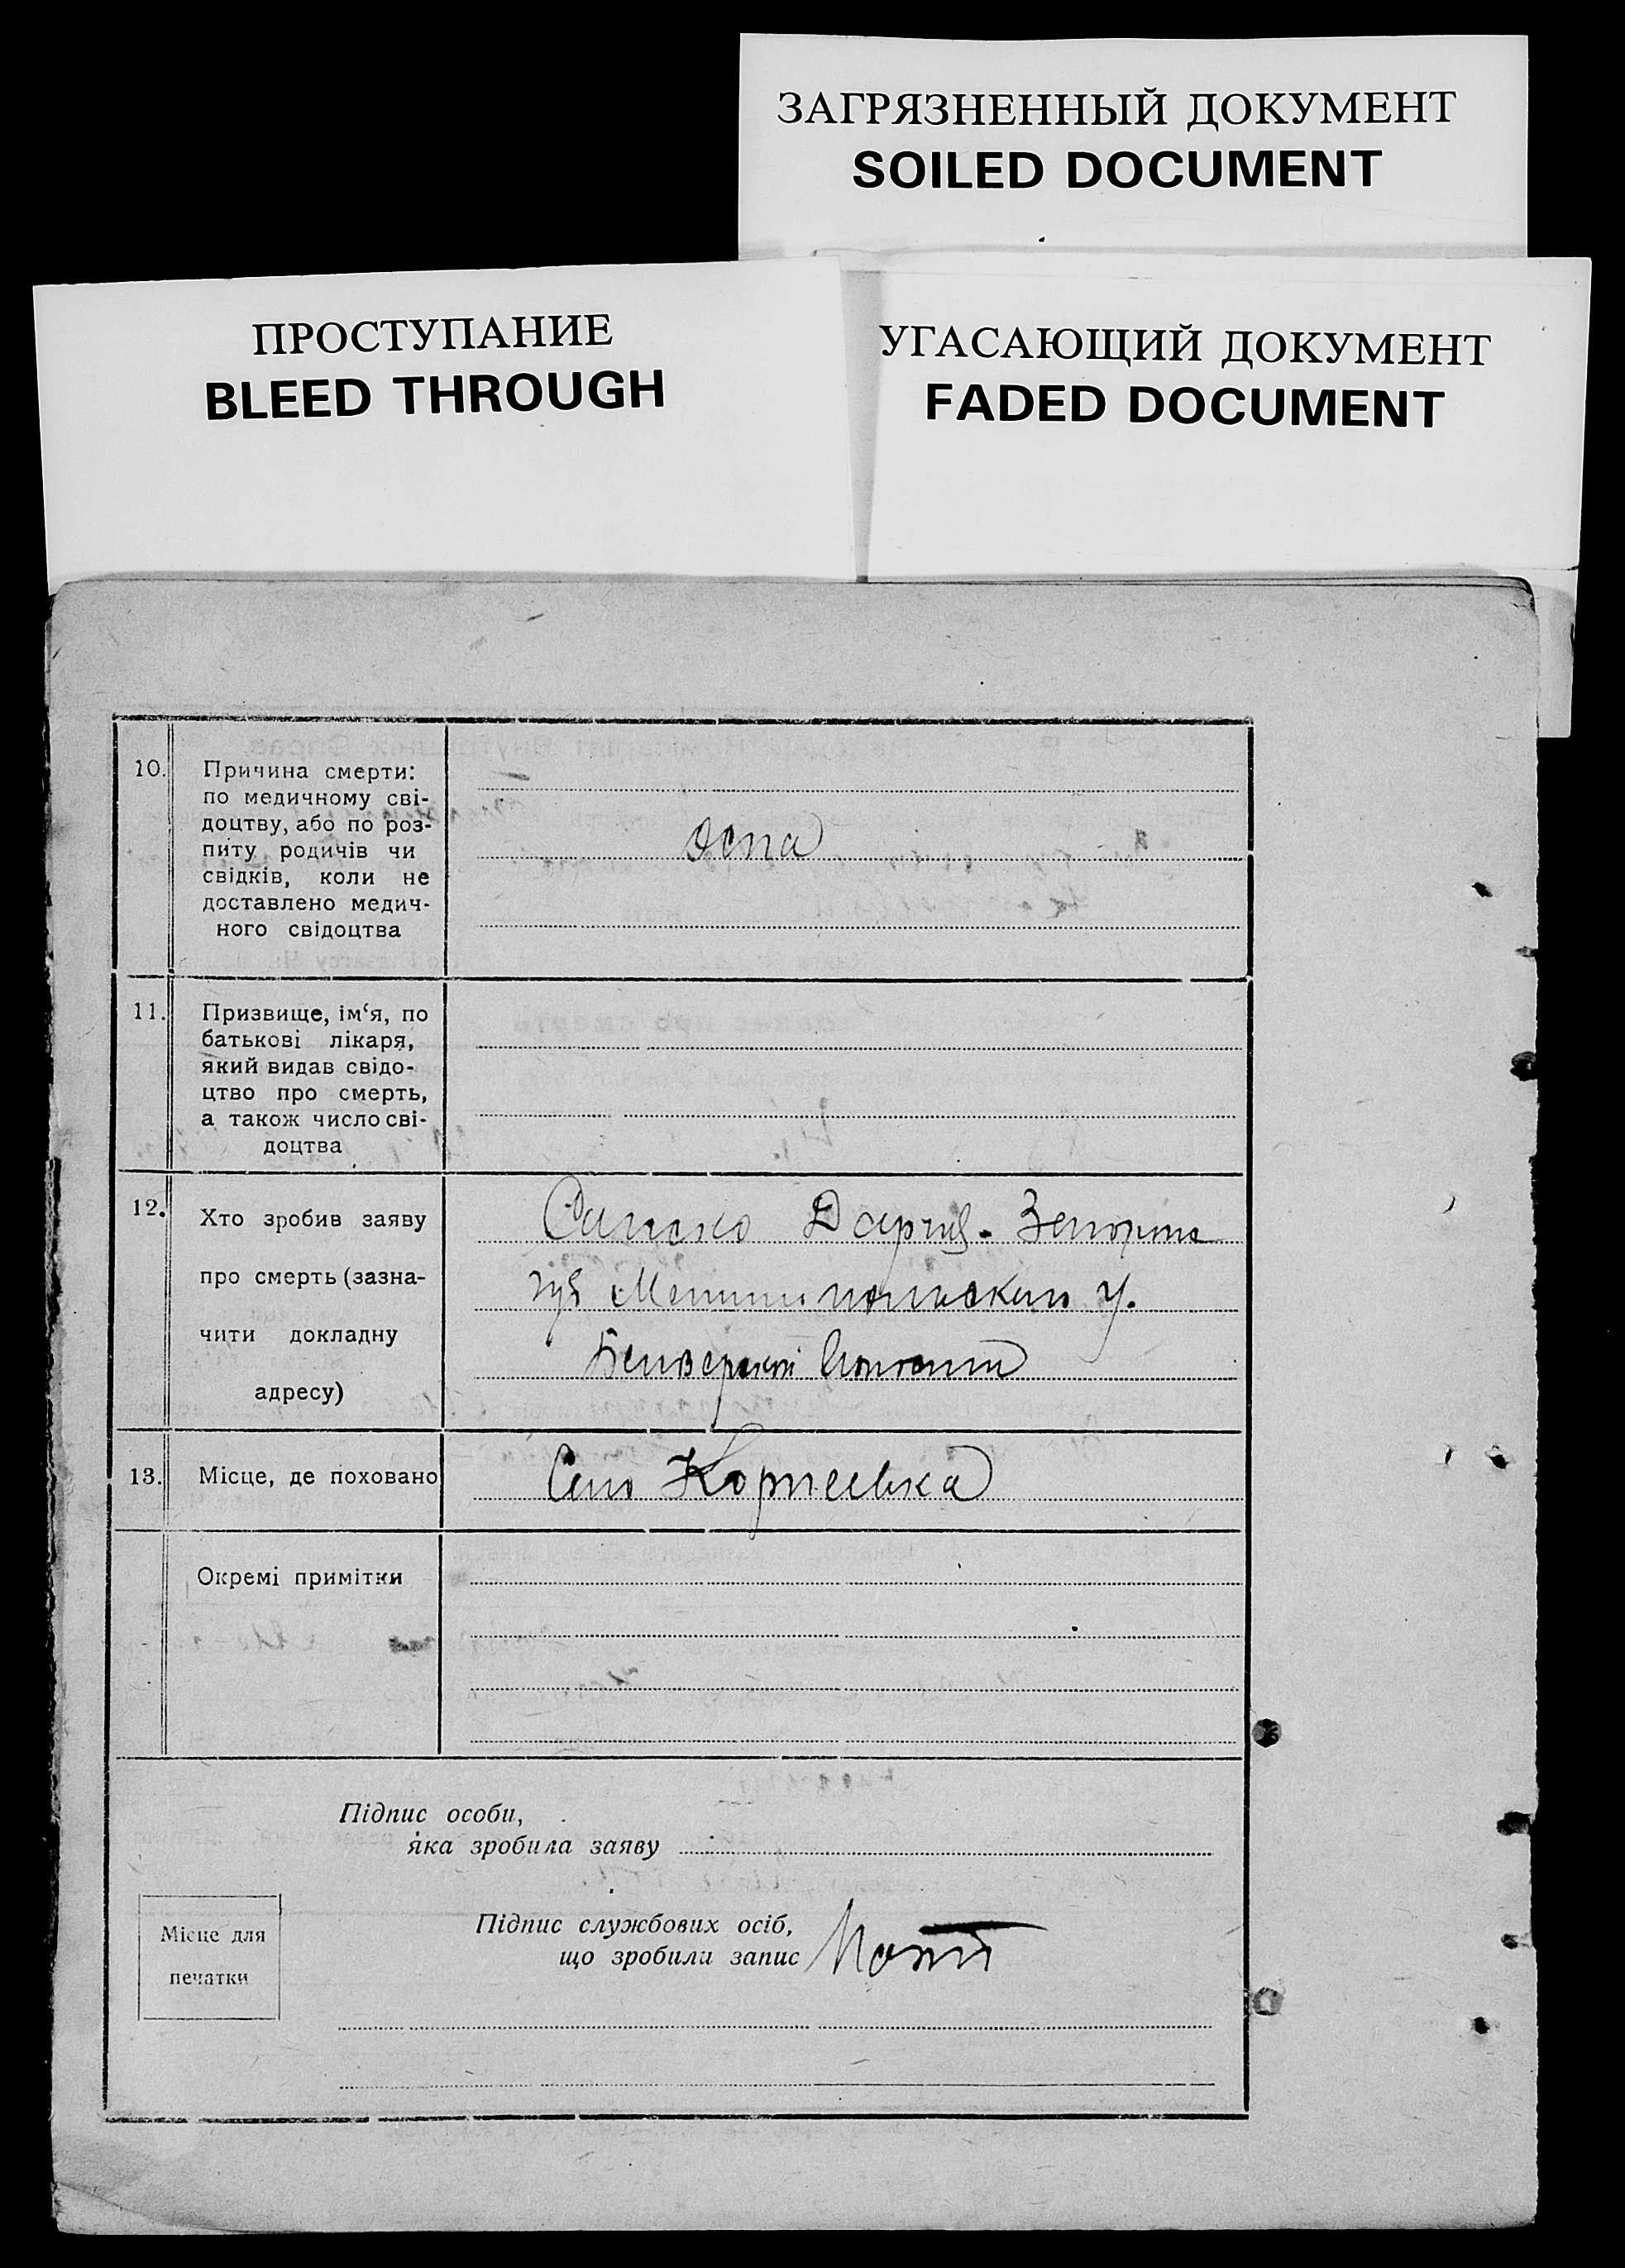 ЗАГРЯЗНЕННЫЙ ДОКУМЕНТ
SOILED DOCUMENT
ПРОСТУПАНИЕ
BLEED THROUGH
УГАСАЮЩИЙ ДОКУМЕНТ
FADED DOCUMENT
10. Причина смерти:
по медичному сві-
доцтву, або по роз-
питу родичів чи
свідків, коли не
доставлено медич-
ного свідоцтва
оспа
11. Призвище, ім‘я, по
батькові лікаря,
який видав свідо-
цтво про смерть,
а також число сві-
доцтва
12. Хто зробив заяву
про смерть (зазна-
чити докладну
адресу)
Дария.
губ у.
13. Місце, де поховано
Село Корнеевка
Окремі примітки
Підпис особи,
яка зробила заяву
Місце для
печатки
Підпис службових осіб,
що зробили запис